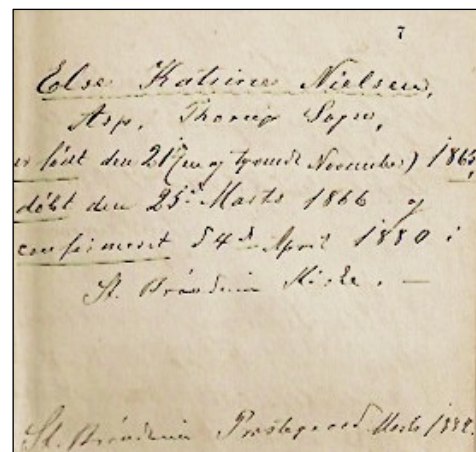 7
Else Katrine Nielsen,
Asp, Thorup Sogn,
er født den 21 (en og tyvende November) 1865,
døbt den 25de Marts 1866 og
confirmeret d 4de April 1880 i
St. Brøndum Kirke. —
St. Brøndum Præstegaard Marts 1882.